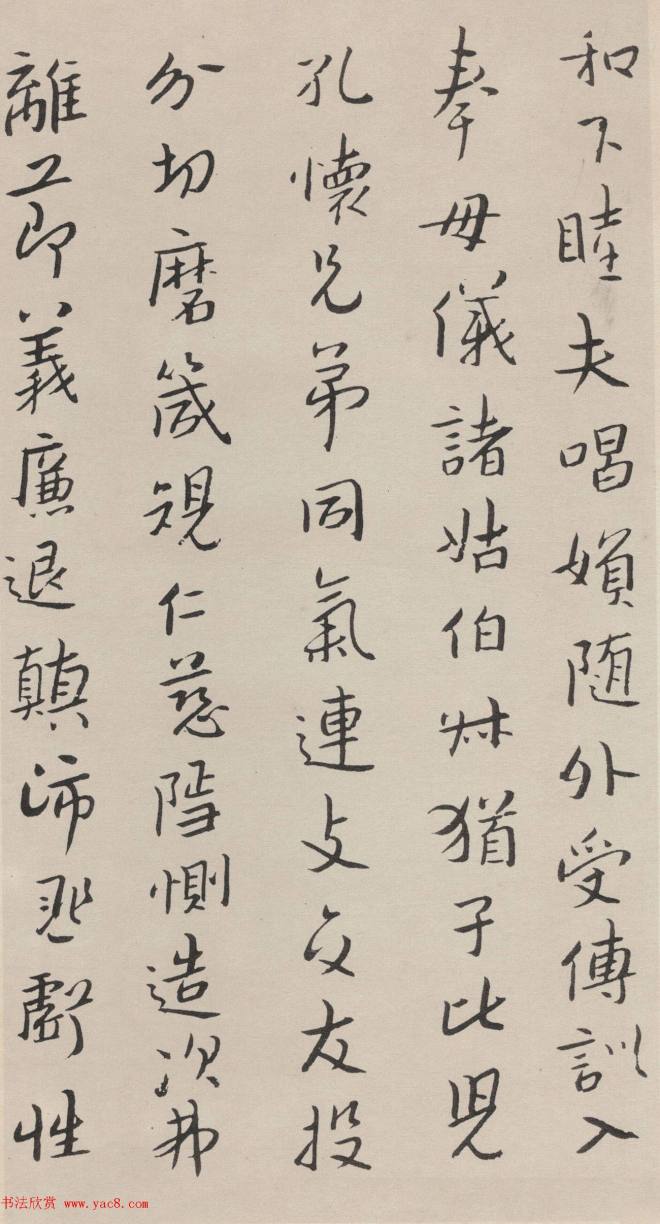 和下睦夫唱婦随外受傅訓入
奉母儀諸姑伯叔猶子比兒
孔懷兄弟同氣連枝交友投
分切磨箴規仁慈隱惻造次弗
離節義廉退顛沛匪虧性
书法欣赏 www.yac8.com